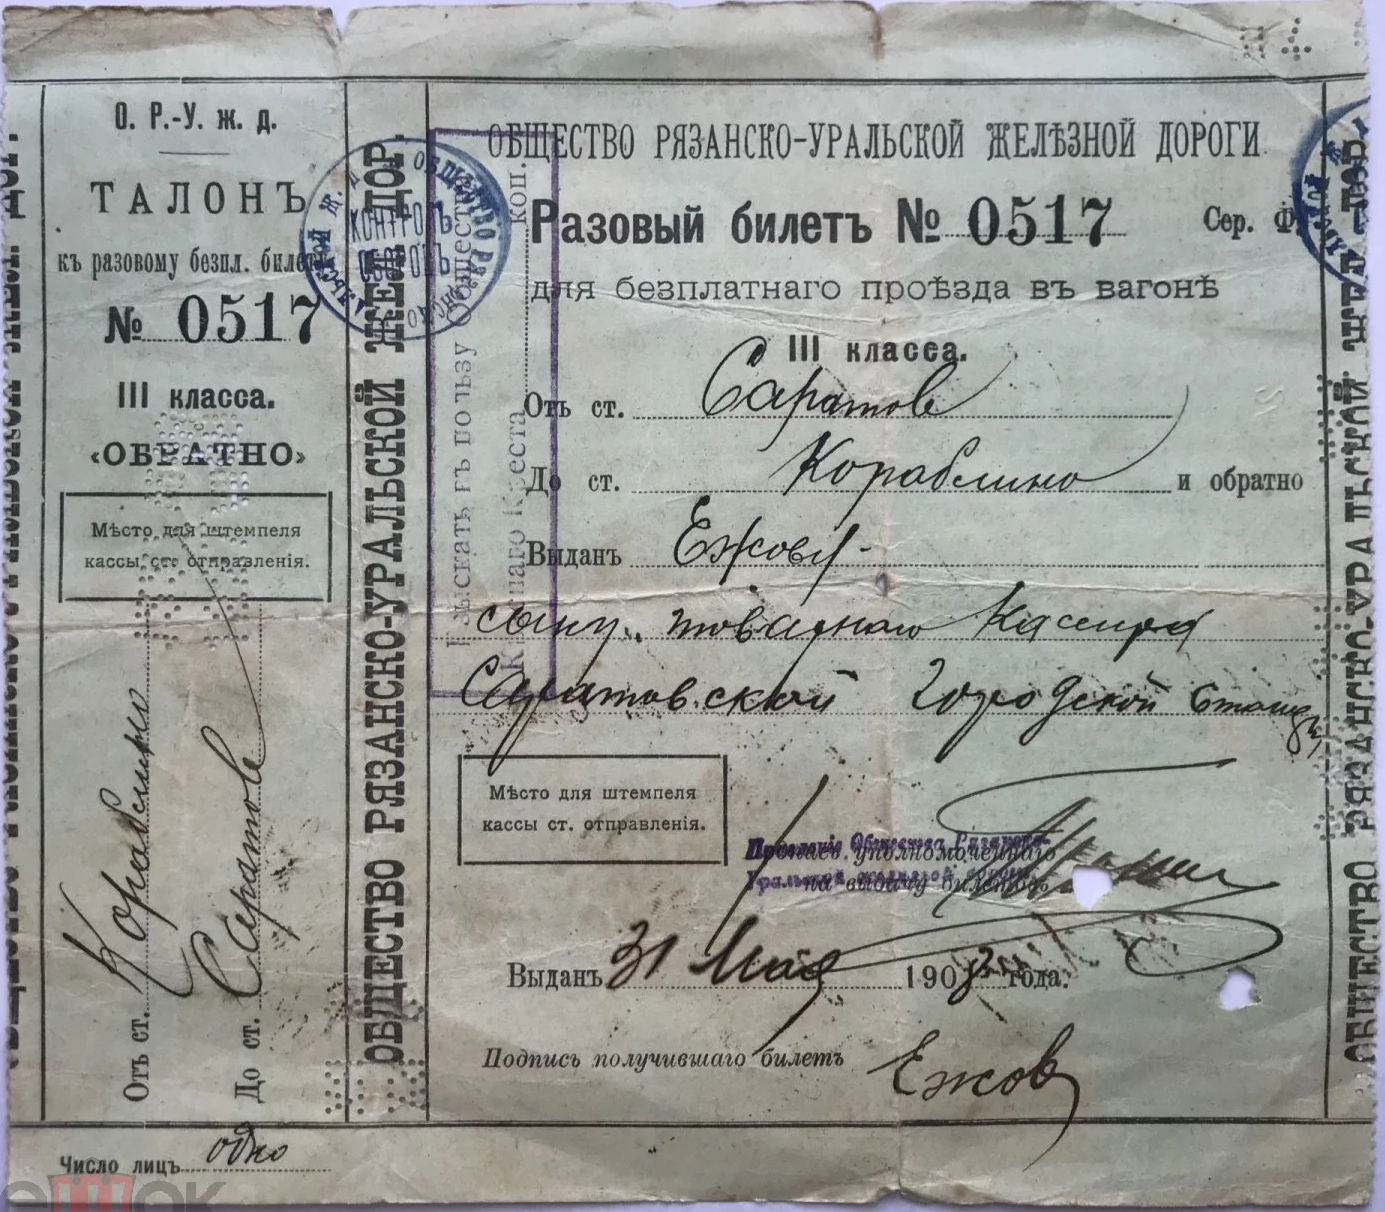 О. Р.-У. ж. д.
ТАЛОНЪ
къ разовому безпл. билету
№ 0517
III класса.
«ОБРАТНО»
Мѣсто для штемпеля
кассы ст. отправленія.
Отъ ст. Кораблино
До ст. Саратовъ
Число лицъ одно
ОБЩЕСТВО РЯЗАНСКО-УРАЛЬСКОЙ ЖЕЛ. ДОР.
КОНТРОЛЬ
Взыскать въ пользу Общества
Краснаго Креста коп.
ОБЩЕСТВО РЯЗАНСКО-УРАЛЬСКОЙ ЖЕЛѢЗНОЙ ДОРОГИ
Разовый билетъ № 0517 Сер. Ф.
для безплатнаго проѣзда въ вагонѣ
III класса.
Отъ ст. Саратовъ
До ст. Кораблино и обратно
Выданъ Ежову
сыну товарнаго Кассира
Саратовской Городской Станціи
Мѣсто для штемпеля
кассы ст. отправленія.
Правленіе Общества Рязанско-
Уральской желѣзной дороги
Подпись уполномоченнаго
на выдачу билетовъ
Выданъ 31 Мая 1903 года.
Подпись получившаго билетъ Ежов
ОБЩЕСТВО РЯЗАНСКО-УРАЛЬСКОЙ ЖЕЛ. ДОР.